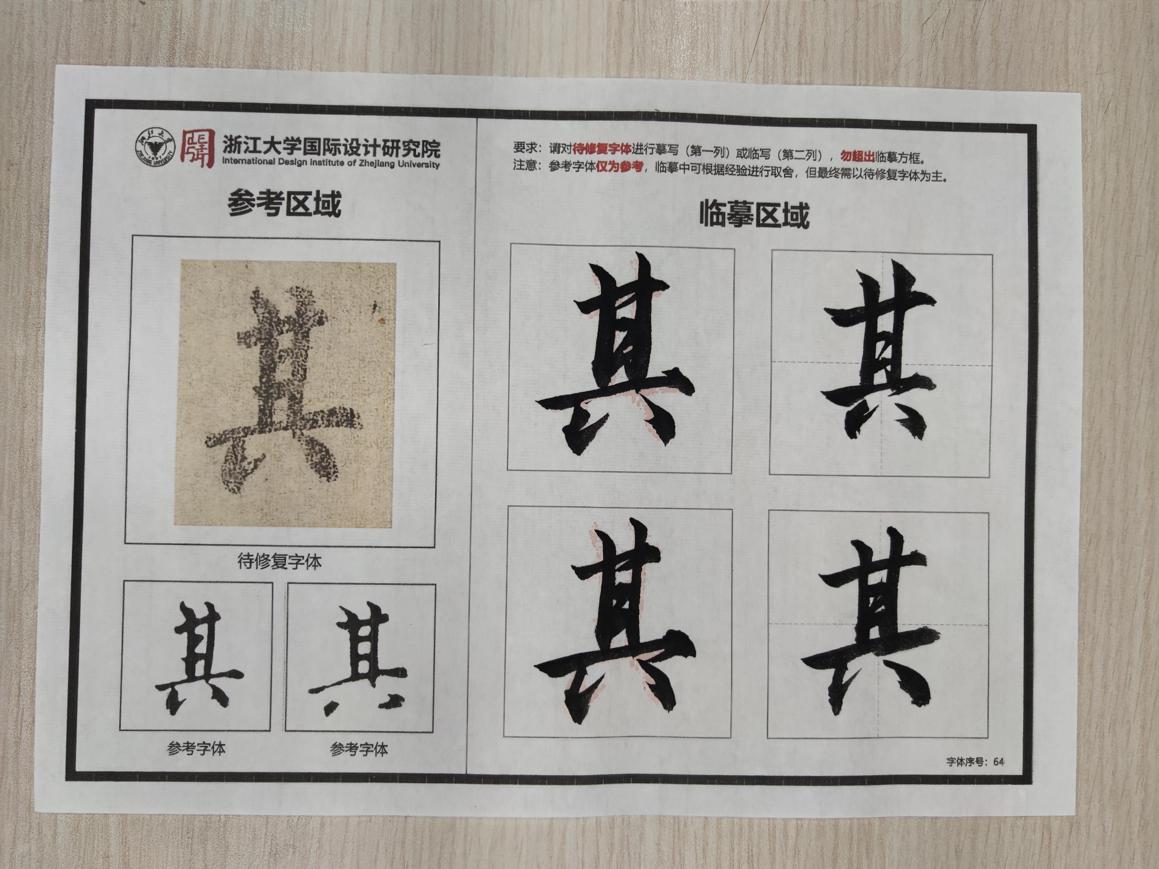 浙江大学国际设计研究院
International Design Institute of Zhejiang University
参考区域
其
待修复字体
其
其
参考字体
参考字体
要求:请对待修复字体进行摹写(第一列)或临写(第二列),勿超出临摹方框。
注意:参考字体仅为参考,临摹中可根据经验进行取舍,但最终需以待修复字体为主。
临摹区域
其
其
其
其
字体序号:64